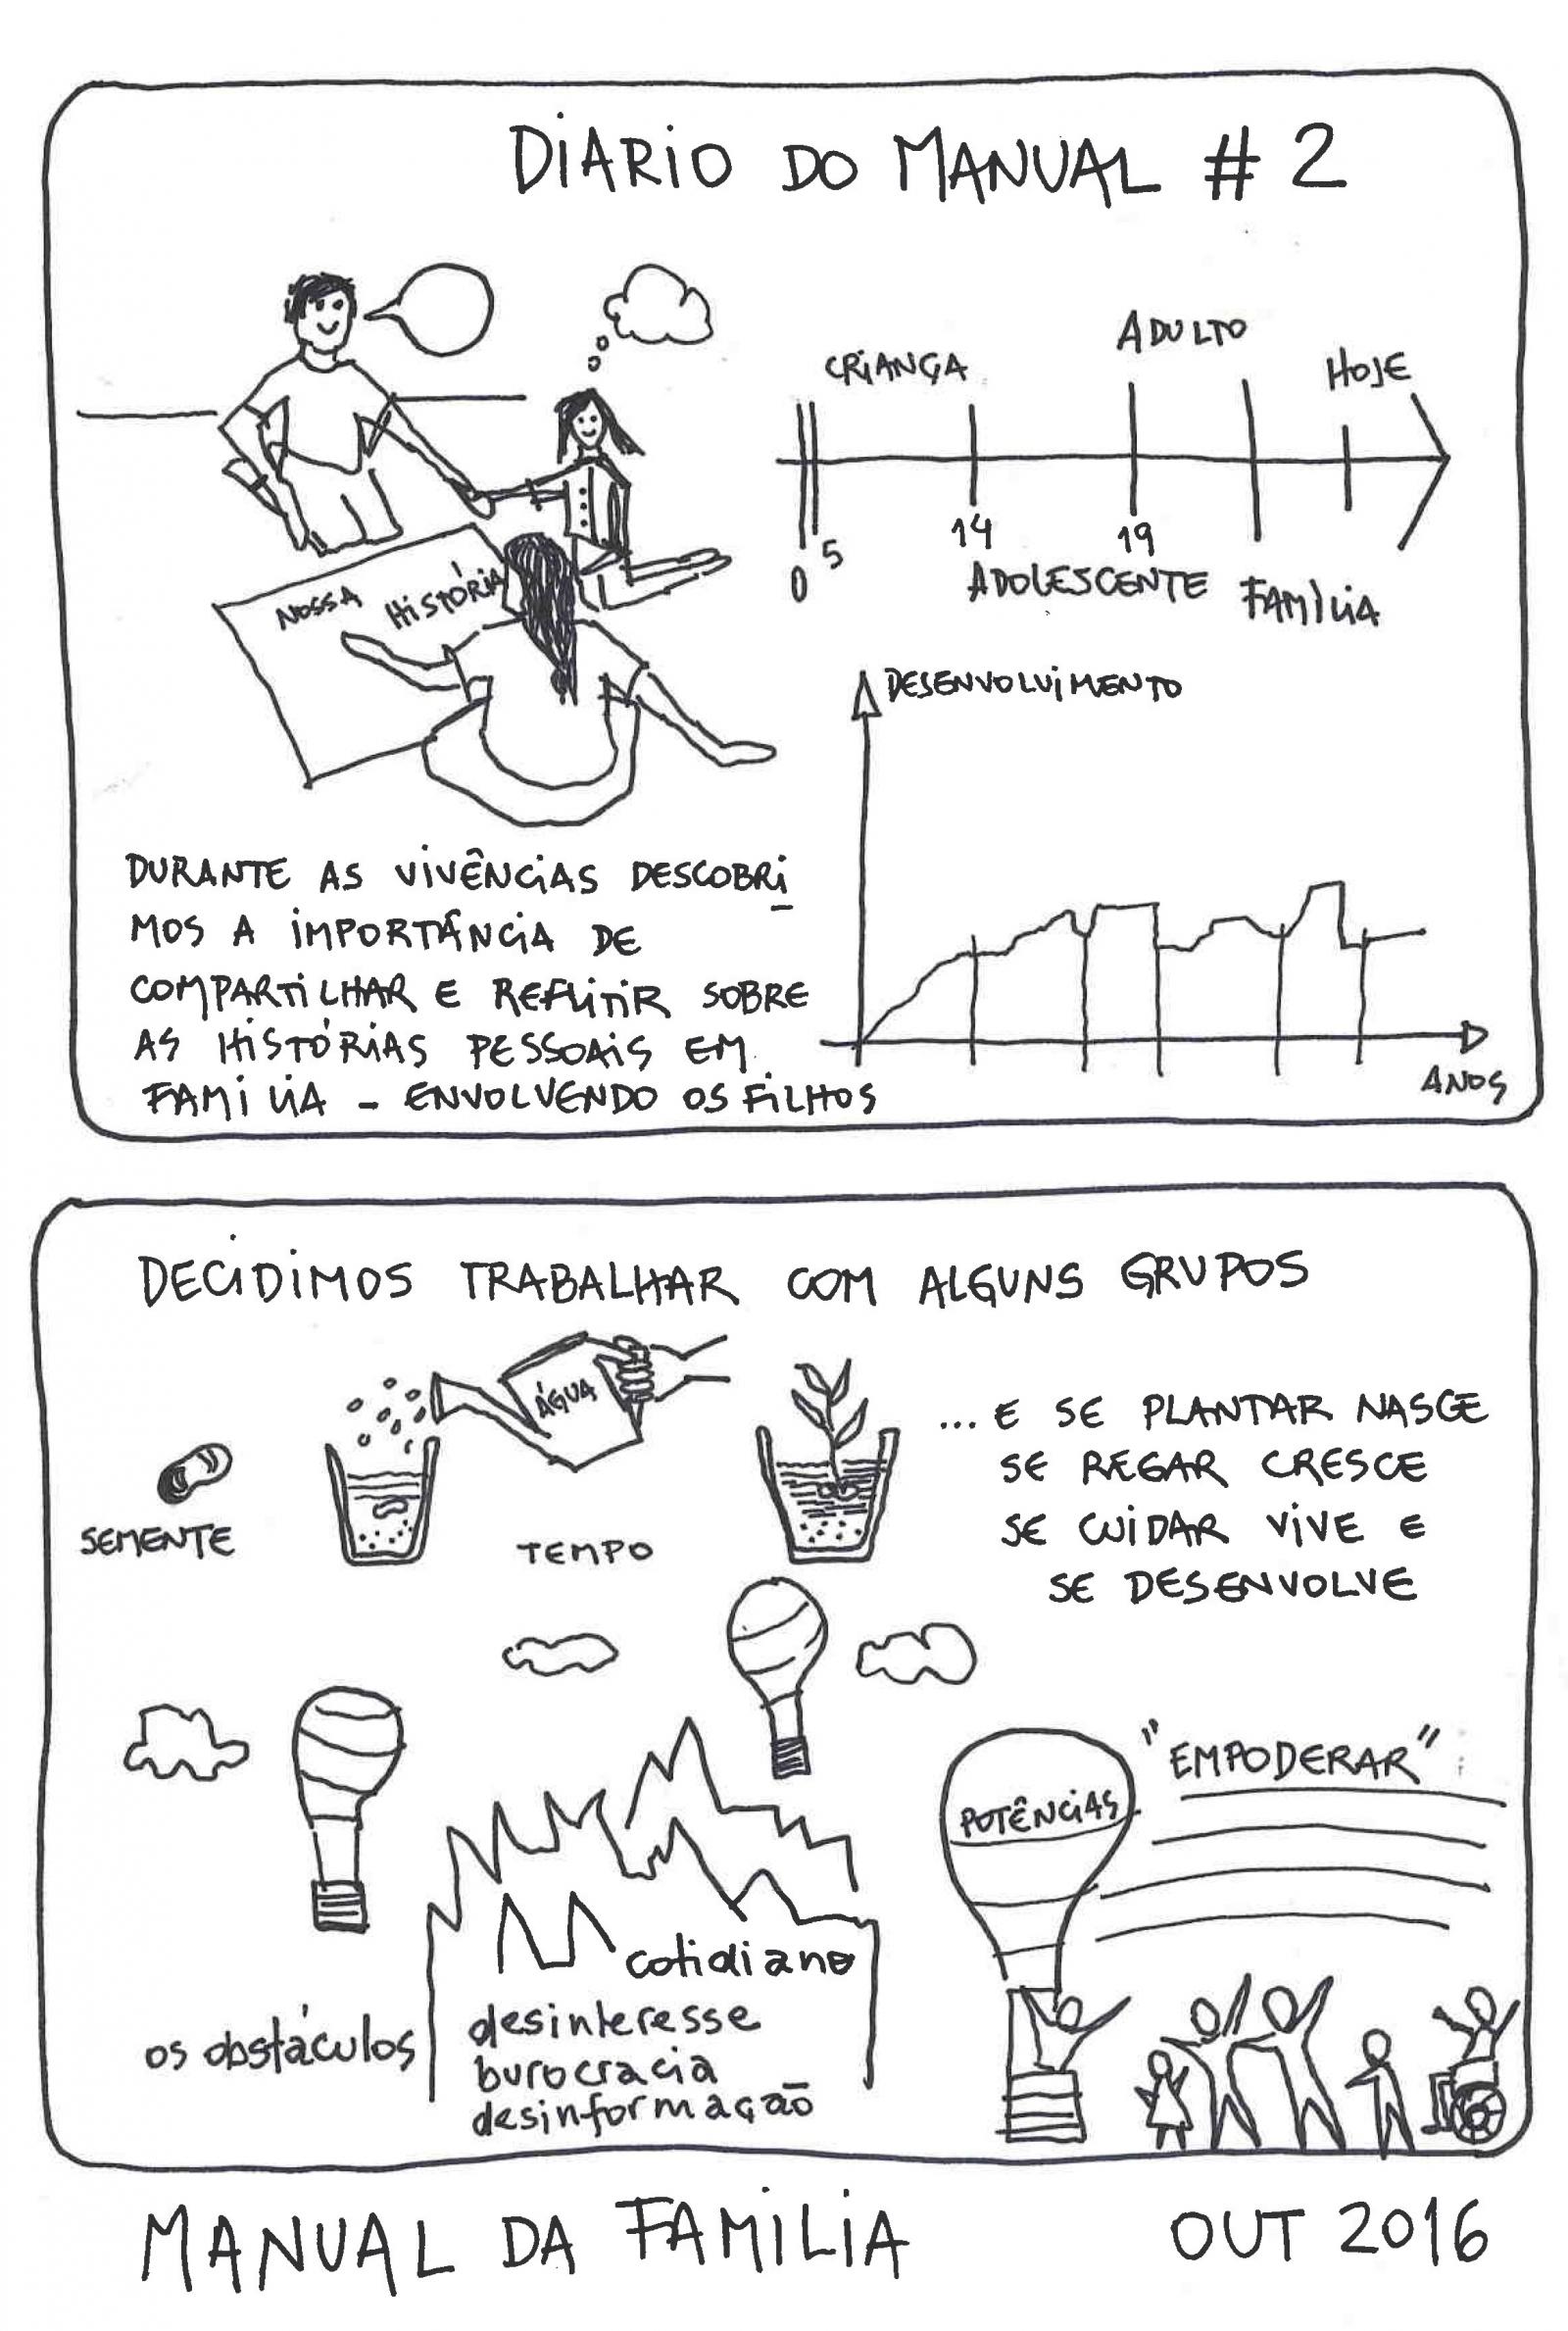 DIARIO DO MANUAL #2
CRIANÇA
ADULTO
HOJE
0
5
14
19
ADOLESCENTE
FAMÍLIA
NOSSA HISTÓRIA
DESENVOLVIMENTO
ANOS
DURANTE AS VIVÊNCIAS DESCOBRI
MOS A IMPORTÂNCIA DE
COMPARTILHAR E REFLITIR SOBRE
AS HISTÓRIAS PESSOAIS EM
FAMILIA - ENVOLVENDO OS FILHOS
DECIDIMOS TRABALHAR COM ALGUNS GRUPOS
SEMENTE
ÁGUA
TEMPO
... E SE PLANTAR NASCE
SE REGAR CRESCE
SE CUIDAR VIVE E
SE DESENVOLVE
"EMPODERAR"
POTÊNCIAS
os obstáculos
cotidiano
desinteresse
burocracia
desinformação
MANUAL DA FAMILIA
OUT 2016